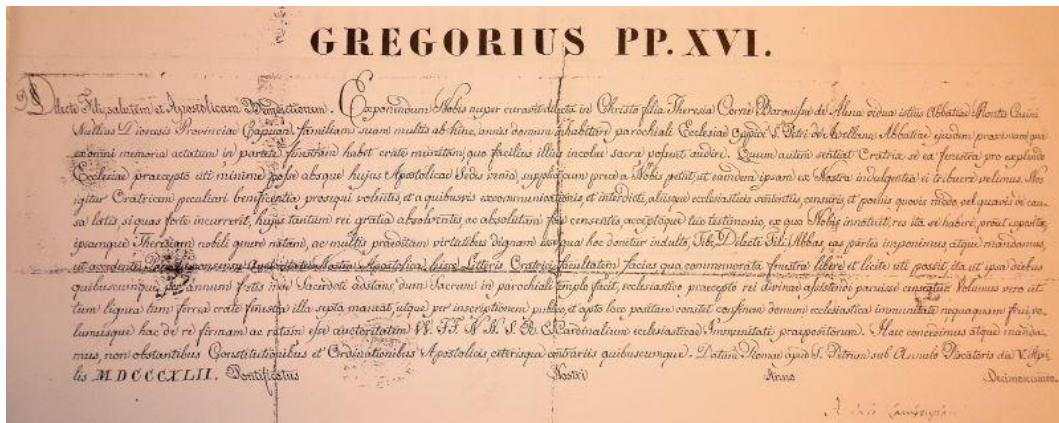 GREGORIUS PP. XVI.
Dilecte Fili, salutem et Apostolicam Benedictionem. Exponendum Nobis nuper curavit dilecta in Christo filia Theresia Corne Baronissa de Alena vidua istius Abbatiae Montis Casini
Nullius Dioecesis Provinciae Capuan: familiam suam multis ab hinc annis domum inhabitare parochiali Ecclesiae Oppidi S. Petri de Avellana Abbatiae ejusdem proximam quae
ex omni memoria aetatum in pariete finestram habet crate munitam, quo facilius illius incolae sacra possent audire. Quum autem sentiat Oratrix se ea finestra pro explendo
Ecclesiae praecepto uti minime posse absque hujus Apostolicae Sedis venia, supplici cum prece a Nobis petiit, ut eamdem ipsam ex Nostra indulgentia ei tribuere velimus. Nos
igitur Oratricem peculiari beneficentia prosequi volentes, et a quibusvis excommunicationis, et interdicti, aliisque ecclesiasticis sententiis, censuris, et poenis quovis modo, vel quavis de cau-
sa latis, si quas forte incurrerit, hujus tantum rei gratia absolventes ac absolutam fore censentes, acceptoque tuo testimonio, ex quo Nobis innotuit, res ita se habere, prout exposita,
ipsamque Theresiam nobili genere natam, ac multis praeditam virtutibus dignam esse qua hoc donetur indulto, Tibi, Dilecte Fili Abbas, eas partes imponimus, atque mandamus,
ut accedente Auctoritate Nostra Apostolica hisce Litteris Oratrici facultatem facias qua commemorata finestra libere et licite uti possit, ita ut ipsa diebus
quibuscumque per annum festis inde Sacerdoti adstans dum Sacrum in parochiali templo facit, ecclesiastico praecepto rei divinae assistendi paruisse censeatur. Volumus vero ut
tum lignea tum ferrea crate finestra illa septa maneat, utque per inscriptionem publice, et apto loco positam constet confinem domum ecclesiastica immunitate nequaquam frui, vo-
lumusque hac de re firmam ac ratam esse auctoritatem VV. FF. N. N. S. R. E. Cardinalium ecclesiasticae Immunitati praepositorum. Haec concedimus atque manda-
mus, non obstantibus Constitutionibus et Ordinationibus Apostolicis, ceterisque contrariis quibuscumque. Datum Romae apud S. Petrum sub Annulo Piscatoris die V. Apri-
lis MDCCCXLII. Pontificatus Nostri Anno Decimosecundo.